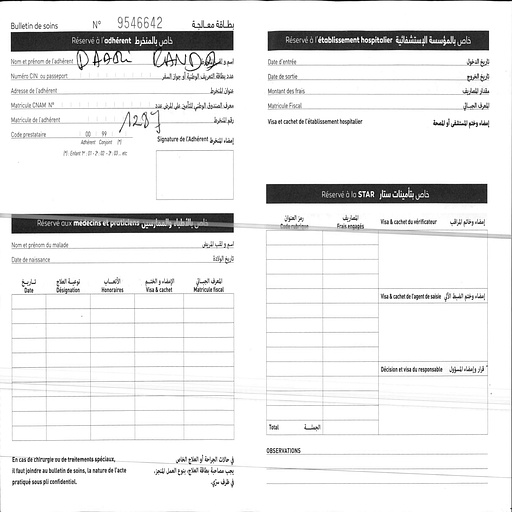 Bulletin de soins N° 9546642 بطاقة معالجة
Réservé à l'adhérent خاص بالمنخرط
Nom et prénom de l'adhérent DAADL اسم و لقب
Numéro CIN ou passeport عدد بطاقة التعريف الوطنية أو جواز السفر
Adresse de l'adhérent عنوان المنخرط
Matricule CNAM N° معرف الصندوق الوطني للتأمين على المرض عدد
Matricule de l'adhérent 1287 رقم المنخرط
Code prestataire 00 99
Adhérent Conjoint (*)
(*): Enfant 1er : 01 - 2è : 02 - 3è : 03 ... etc
Signature de l'Adhérent إمضاء المنخرط
Réservé aux médecins et praticiens خاص بالأطباء والممارسين
Nom et prénom du malade اسم و لقب المريض
Date de naissance تاريخ الولادة
تاريخ نوعية العلاج الأتعاب الإمضاء و الختم المعرف الجبائي
Date Désignation Honoraires Visa & cachet Matricule fiscal
En cas de chirurgie ou de traitements spéciaux,
il faut joindre au bulletin de soins, la nature de l'acte
pratiqué sous pli confidentiel.
في حالات الجراحة أو العلاج الخاص
يجب مصاحبة بطاقة العلاج، بنوع العمل المنجز،
في ظرف سري.
Réservé à l'établissement hospitalier خاص بالمؤسسة الإستشفائية
Date d'entrée تاريخ الدخول
Date de sortie تاريخ الخروج
Montant des frais مقدار المصاريف
Matricule Fiscal المعرف الجبائي
Visa et cachet de l'établissement hospitalier إمضاء وختم المستشفى أو المصحة
Réservé à la STAR خاص بتأمينات ستار
رمز العنوان المصاريف
Code rubrique Frais engagés
Visa & cachet du vérificateur إمضاء وخاتم المراقب
Visa & cachet de l'agent de saisie إمضاء وختم الضبط الآلي
Décision et visa du responsable قرار وإمضاء المسؤول
Total الجملة
OBSERVATIONS